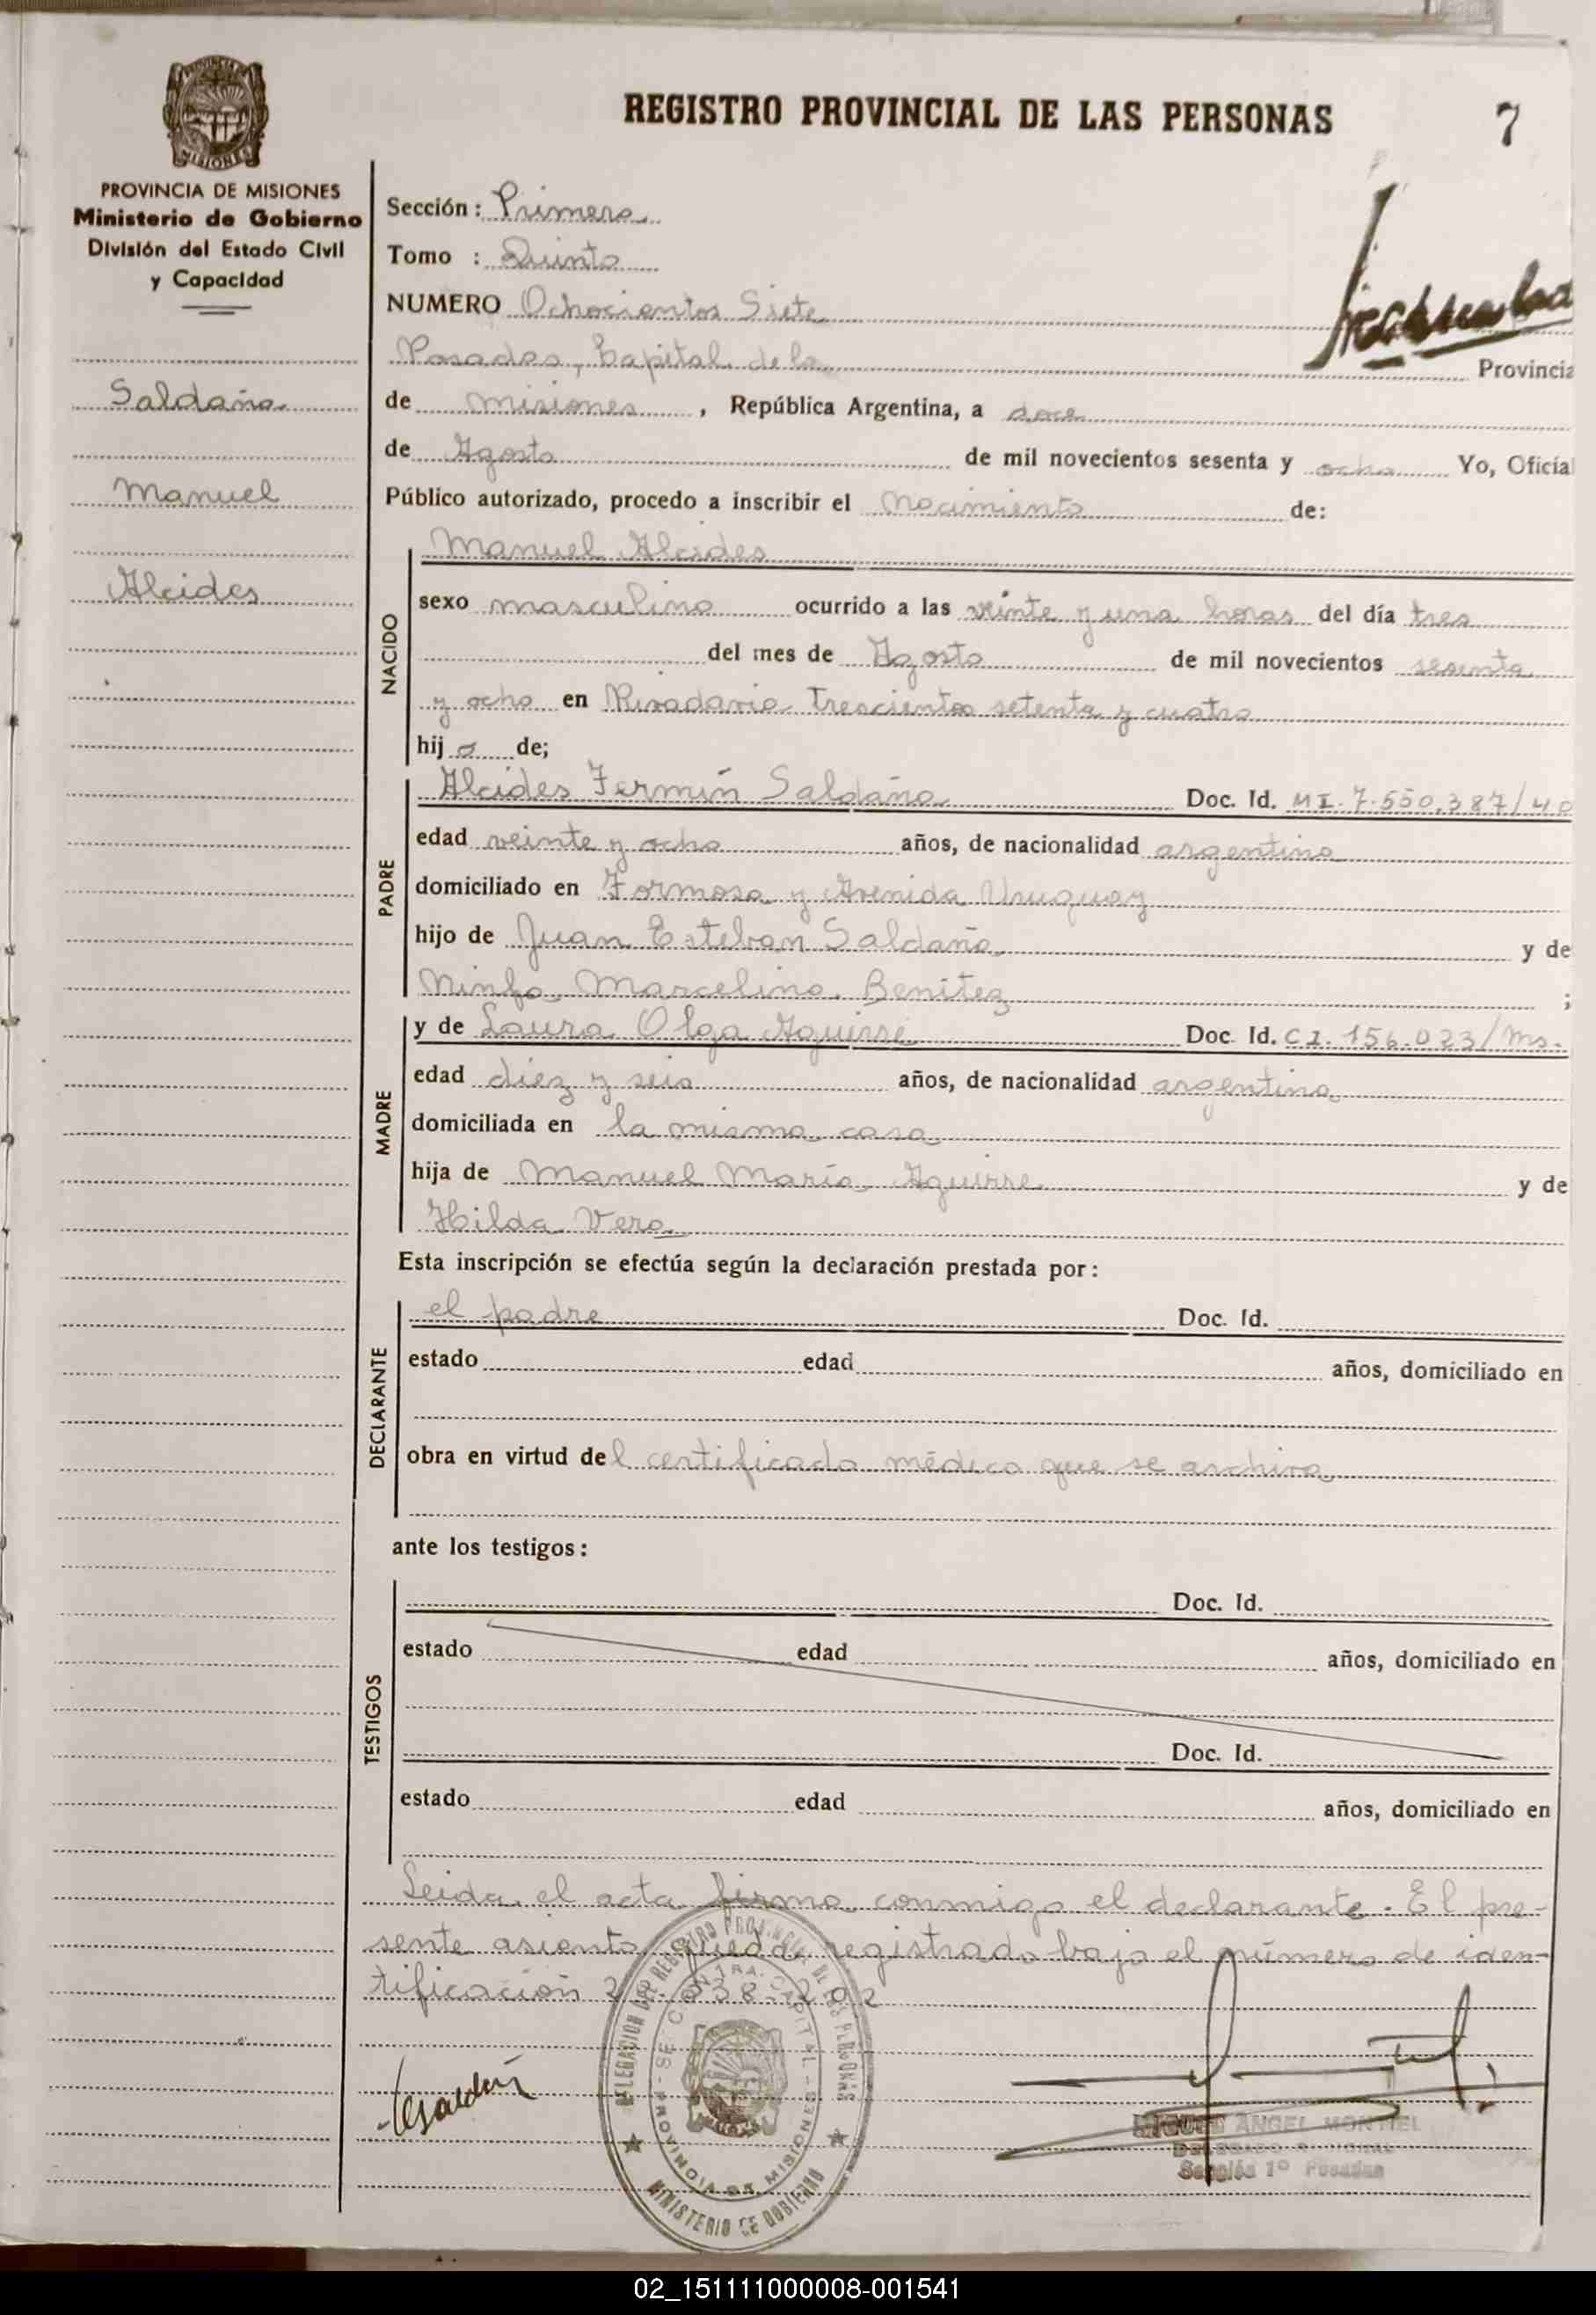 REGISTRO PROVINCIAL DE LAS PERSONAS
7
PROVINCIA DE MISIONES
MISIONES
PROVINCIA DE MISIONES
Ministerio de Gobierno
División del Estado Civil
y Capacidad
Saldaña
Manuel
Alcides
Sección: Primera
Tomo : Quinto
NUMERO Ochocientos Siete
Posadas, Capital de la Provincia
de Misiones, República Argentina, a doce
de Agosto de mil novecientos sesenta y ocho Yo, Oficial
Público autorizado, procedo a inscribir el Nacimiento de:
NACIDO
Manuel Alcides
sexo masculino ocurrido a las veinte y una horas del día tres
del mes de Agosto de mil novecientos sesenta
y ocho en Rivadavia Trescientos setenta y cuatro
hijo de;
PADRE
Alcides Fermín Saldaña Doc. Id. MI. 7.550.387/40
edad veinte y ocho años, de nacionalidad argentina
domiciliado en Formosa y Avenida Uruguay
hijo de Juan Esteban Saldaña y de
Ninfa Marcelina Benitez ;
MADRE
y de Laura Olga Aguirre Doc. Id. CI. 156.023/Ms.
edad diez y seis años, de nacionalidad argentina
domiciliada en la misma casa
hija de Manuel María Aguirre y de
Hilda Vera
Esta inscripción se efectúa según la declaración prestada por:
DECLARANTE
el padre Doc. Id.
estado edad años, domiciliado en
obra en virtud del certificado médico que se archiva
ante los testigos:
TESTIGOS
Doc. Id.
estado edad años, domiciliado en
Doc. Id.
estado edad años, domiciliado en
Leida el acta firma conmigo el declarante. El pre-
sente asiento queda registrado bajo el número de iden-
tificación
DELEGACION DEL REGISTRO PROVINCIAL DE LAS PERSONAS
MINISTERIO DE GOBIERNO
PROVINCIA DE MISIONES
MIGUEL ANGEL MONTIEL
Sección 1º Posadas
02_151111000008-001541